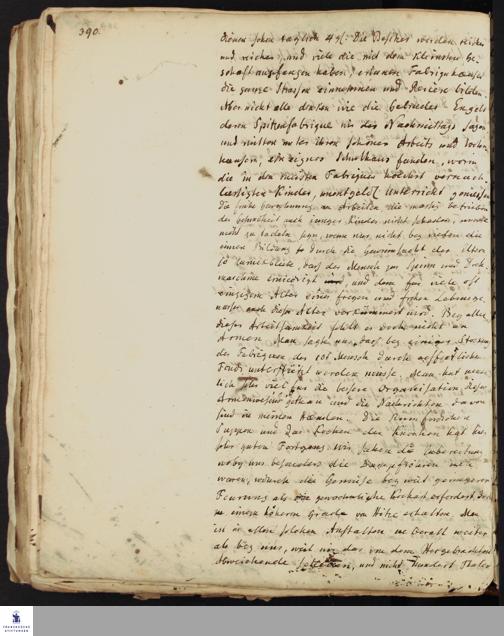 390.
dienen schon täglich 4 gl: Die Besitzer werden reicher
und reicher, und viele die mit dem kleinsten Ge
schäft angefangen haben, erbauen Fabrikhäuser
die ganze Strassen einnehmen und Reviere bilden.
Aber nicht alle denken wie die Gebrüder Engels
deren Spitzenfabrique wir des Nachmittags sahen
und mitten unter ihren schönen Arbeits und
häusern, ein eignes Schulhaus fanden, worin
die in den meisten Fabriquen höchst vernach
lässigten Kinder, unentgeldl. Unterricht geniessen
Die frühe Gewöhnung an Arbeiten die mässig betrieben
der Gesundheit auch junger Kinder nicht schaden,
nicht zu tadeln seyn, wenn nur nicht bey vielen die
innere Bildung so durch die Gewinnsucht der Eltern
so zurückbliebe, dass der Mensch zur Spinn und
maschine erniedrigt wird und dem für viele oft
einzigen Alter eines freyen und frohen Lebensge
nusses auch dieses Alter verkümmert wird. Bey aller
dieser Arbeitsamkeit fehlt es doch nicht an
Armen. Man sagte uns, dass bey einigen Stocken
der Fabriquen der 10t Mensch durch öffentliche
Fonds unterstützt werden müsse. Man hat
lich sehr viel für die bessere Organisation dieses
Armenwesens gethan und die Nachrichten davon
sind in meinen Händen. Die
Suppen und das Kochen der Knochen hat
sehr guten Fortgang. Wir sahen die Zubereitung
wobey uns besonders die Dampfröhren neu
waren, wodurch die Gemüse bey weit geringerer
Feuerung als die gewöhnliche Kochart erfordert, den
zu einem höheren Grade von Hitze erhalten. Man
ist in allen solchen Anstalten überall weiter
als bey uns, weil wir das von dem Hergebrachten
Abweichende scheuen, und nicht hundert Thaler